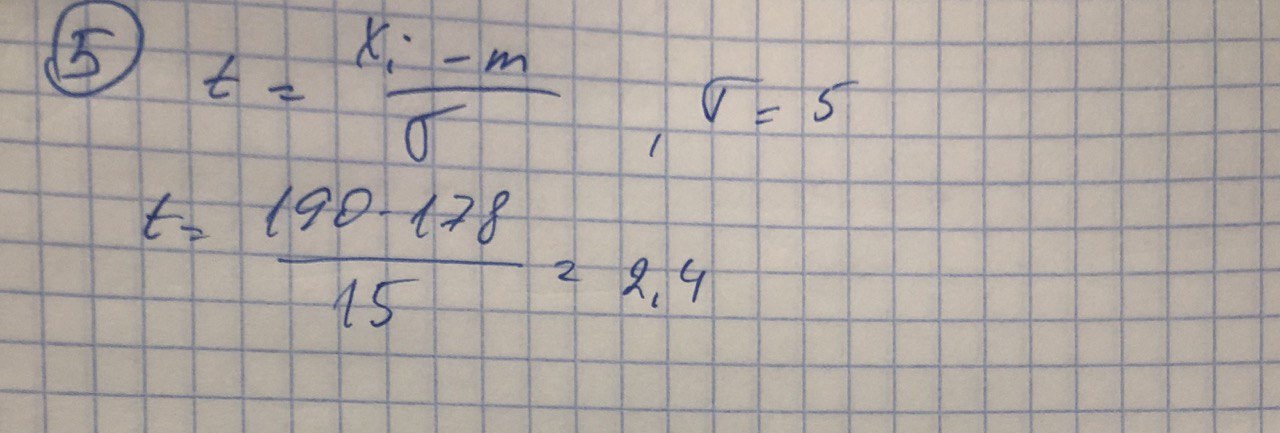 5
t = (x_i - m) / σ , σ = 5
t = (190 - 178) / 15 = 2,4